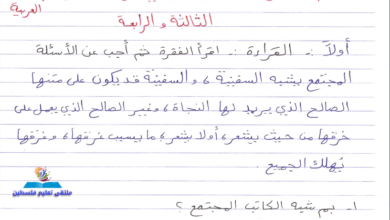 العربية
الثالثة والرابعة
أولاً :- القراءة :- اقرأ الفقرة ثم أجب عن الأسئلة
المجتمع يشبه السفينة ، والسفينة قد يكون على متنها
الصالح الذي يريد لها النجاة ، وغير الصالح الذي يعمل على
خرقها من حيث يشعر ، أو لا يشعر ، ما يسبب غرقها ، وغرقها
يُهلك الجميع .
١- بم شبه الكاتب المجتمع ؟
ملتقى تعليم فلسطين